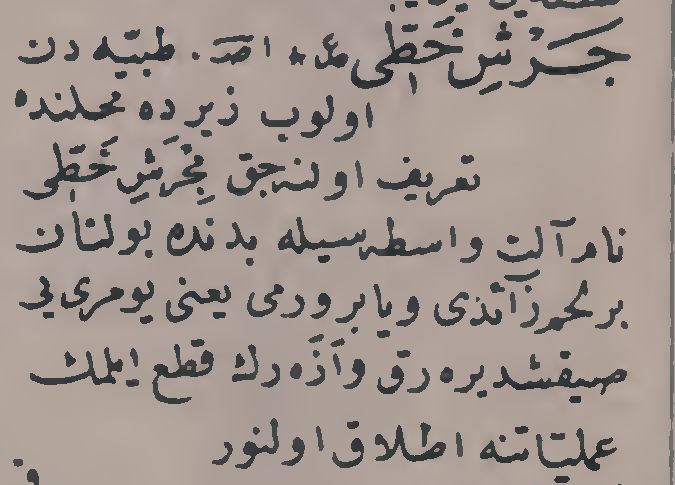 جَرْشِ خَطِّى ع ٭ اصـ . طبيّه دن
اولوب زيرده محلنده
تعريف اولنه جق مِجْرَشِ خَطِّى
نام آلت واسطه سيله بدنده بولنان
بر لحم زآئدى ويا بر ورمى يعنى يومرى يى
صيقشديره رق وآزه رك قطع ايلمك
عملياتنه اطلاق اولنور